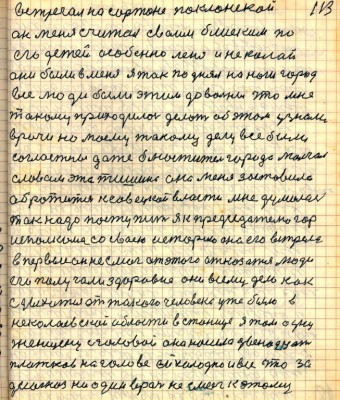 встречал на сартоне поклонской 113
он меня считал своим близким по
его детей особенно леня и николай
они были в меня я так поднял на ноги город
все люди были этим довольни што мне
такому приходилос делат об этом узнали
врачи но моему такому делу все были
согласни даже блюстители города молчал
словом эта тишина она меня заставила
обротится к советской власти мне думалос
так надо поступит я к предедателю гор
исполкома со своею историю она его встрела
в первые он не смог от этого отказатя люди
его получали здоровие они всему делу как
одного человека уже было в
николаевской области в станице я там одну
женщину с головой она носила двенадцат
платков на голове ей холодно и все што за
диагноз ни один врач не смог к етому